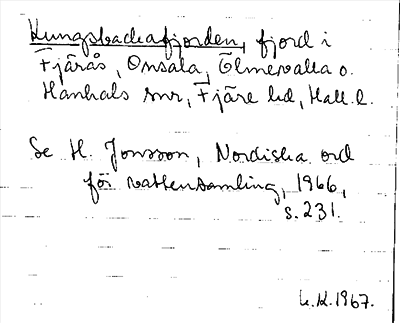 Kungsbackafjorden, fjord i
Fjärås, Onsala, Ölmevalla o.
Hanhals snr, Fjäre hd, Hall. l.
Se H. Jonsson, Nordiska ord
för vattensamling, 1966,
s. 231.
L.K. 1967.